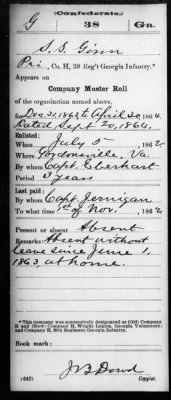 (Confederate.)
G 38 Ga.
S. S. Ginn
Pri, Co. H, 38 Reg't Georgia Infantry.*
Appears on
Company Muster Roll
of the organization named above,
for Dec 31, 1863, to April 30, 1864.
Dated Sept 20, 1864.
Enlisted:
When July 5, 1862
Where Gordonsville, Va.
By whom Capt. Eberhart
Period 3 years
Last paid:
By whom Capt. Jernigan
To what time 1st of Nov., 1862
Present or absent Absent
Remarks: Absent without
leave since June 1,
1863, at home.
*This company was successively designated as (Old) Company
and (New) Company H, Wright Legion, Georgia Volunteers;
and Company H, 38th Regiment Georgia Infantry.
Book mark:
J B Dowd
(642) Copyist.